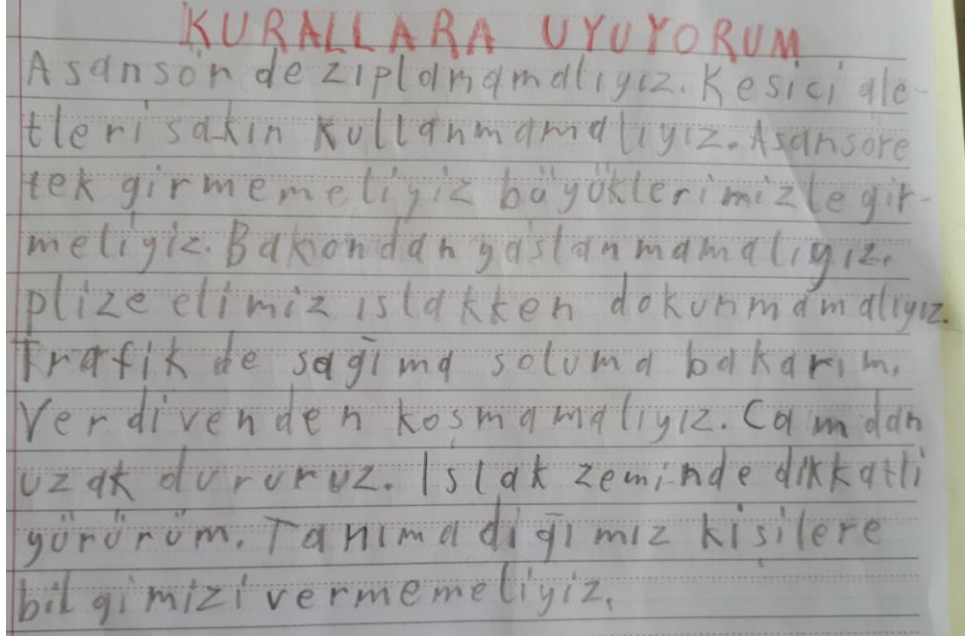 KURALLARA UYUYORUM
Asansön de zıplamamalıyız. Kesici ale-
tleri sakın kullanmamalıyız. Asansöre
tek girmemeliyiz büyüklerimizle gir-
meliyiz. Bakondan yaslanmamalıyız.
plize elimiz ıslakken dokunmamalıyız.
Trafik de sağıma soluma bakarım.
Verdivenden koşmamalıyız. Camdan
uzak dururuz. Islak zeminde dikkatli
yürürüm. Tanımadiğimız kişilere
bilgimizi vermemeliyiz.